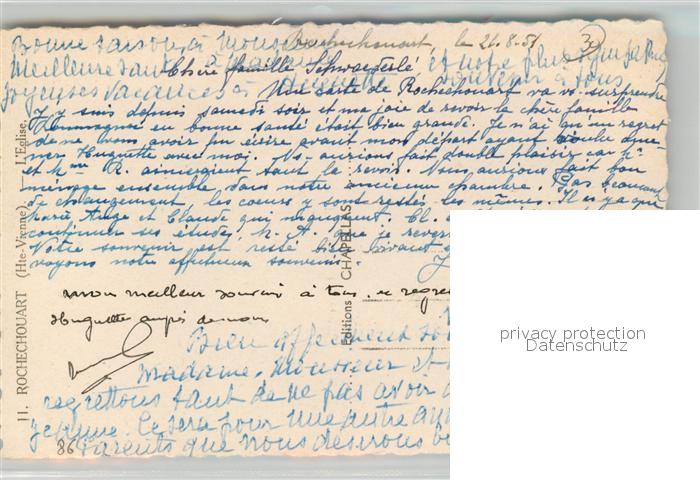 Bonne saison à Monsieur Rochechouart le 21.8.51
Meilleure santé Chère famille Schwaederlé et notre plus
Joyeuses vacances à souvenir à tous
Une carte de Rochechouart va vs. surprendre
J'y suis depuis samedi soir et ma joie de revoir la chère famille
en bonne santé était bien grande. Je n'ai qu'un regret
de ne vous avoir pu écrire avant mon départ ayant voulu ame-
ner Huguette avec moi. Ns. aurions fait double plaisir car Mr
et Mme R. aimeraient tant la revoir. Nous aurions fait bon
ménage ensemble dans notre ancienne chambre. Pas beaucoup
de changement, les coeurs y sont restés les mêmes. Il n'y a que
Marie Ange et Claude qui manquent. Cl.
continuer ses études, M. A. que je
Votre souvenir est resté bien vivant
voyons notre affectueux souvenir.
mon meilleur souvenir à tous. je regrette
Huguette auprès de nous
Bien affectueux
Madame, Monsieur et
regrettons tant de ne pas avoir
Ce sera pour une autre
Parents que nous désirons
86
11. ROCHECHOUART (Hte-Vienne). — L'Eglise.
Editions CHAPELLAS
privacy protection
Datenschutz